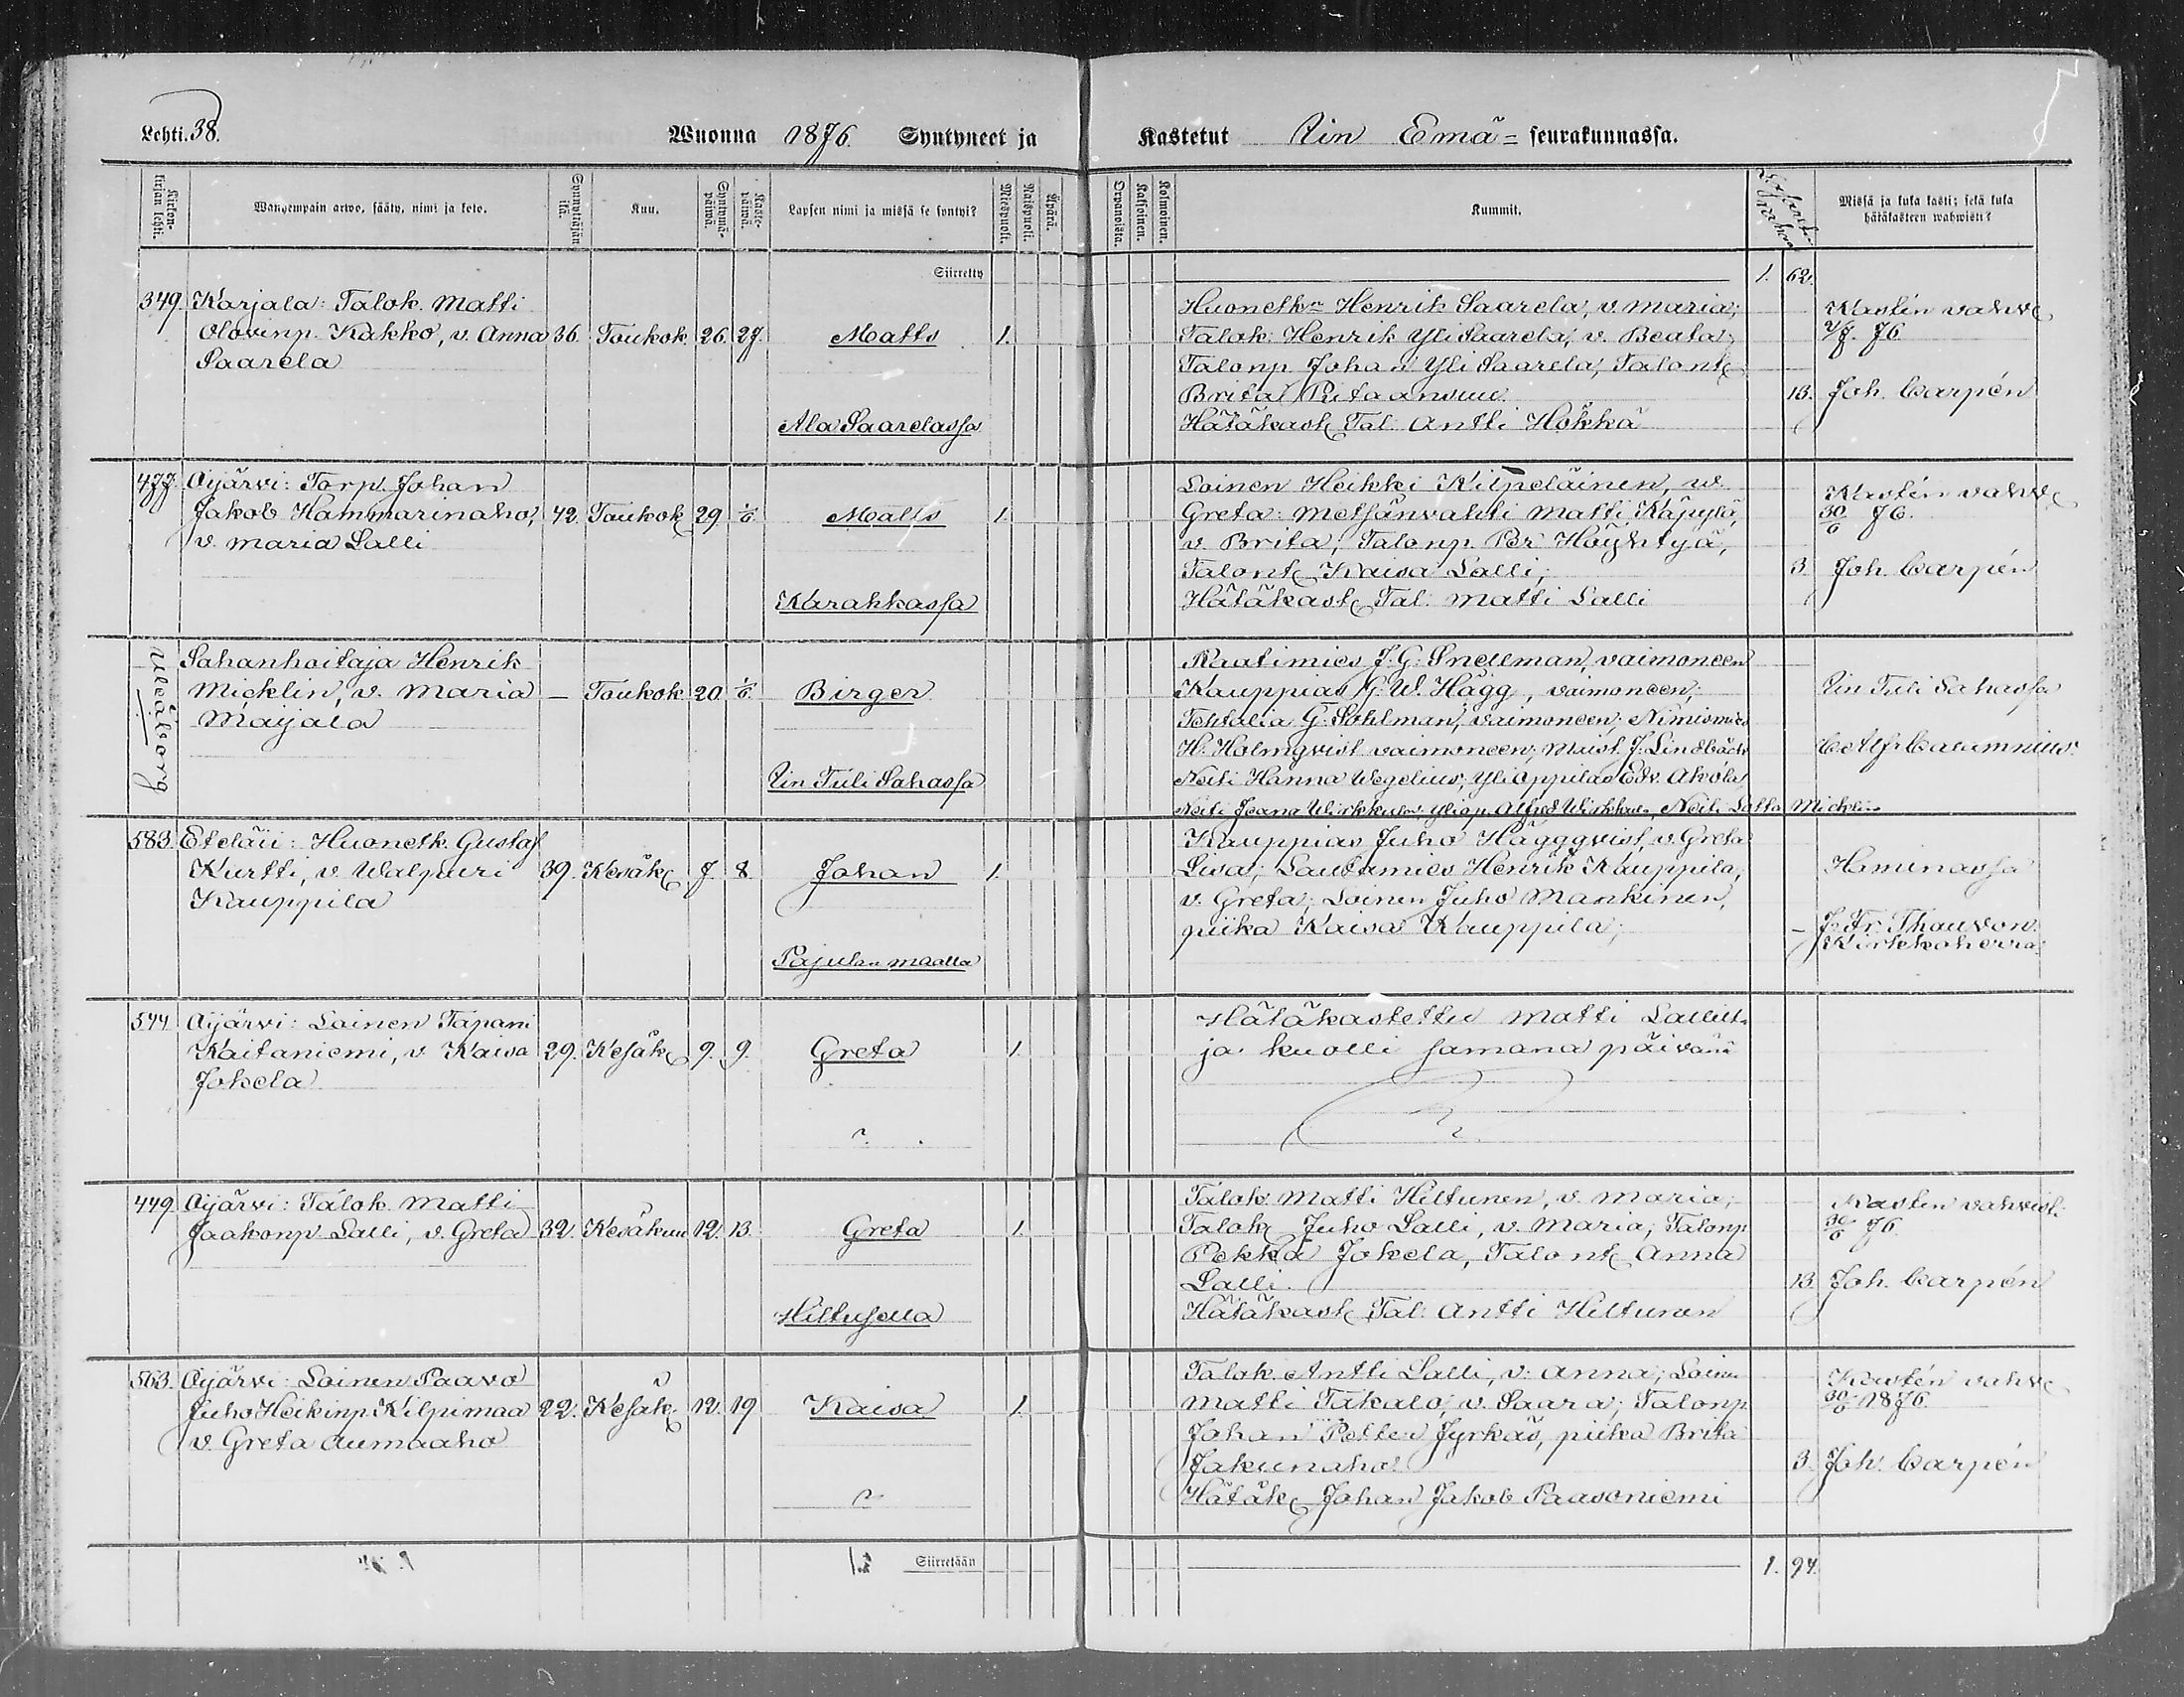 Lehti. 38.
Wuonna 1876. Syntyneet ja
Kastetut Iin Emä- seurakunnassa.
Wanhempain arwo, sääty, nimi ja koto.
Synnyttäjän ikä.
Kuu.
Syntymä-päiwä.
Kaste-päiwä.
Lapsen nimi ja missä se syntyi?
Miespuoli.
Waispuoli.
Äpärä.
Orpanoista.
Kaksoinen.
Kolmoinen.
Kummit.
Missä ja kuka kasti; sekä kuka
hätäkasteen wahwisti?
Siirretty
1. 62.
349. Karjala: Talok. Matti
Olovinp. Kakko, v. Anna 36. Toukok. 26. 27. Matts 1.
Saarela
Ala Saarelassa
Huonetkn Henrik Saarela, v. Maria;
Talok. Henrik Yli Saarela, v. Beata;
Talonp. Johan Yli Saarela, Talont.
Brita
Hätäkast. Tal. Antti Hökkä
Kastén vahv.
76.
13. Joh. Carpén
477. Oijärvi: Torp. Johan
Jakob Hammarinaho, 42. Toukok. 29. 1/6. Matts 1.
v. Maria Lalli
Karahkassa
Loinen Heikki Kilpeläinen, w.
Greta: Metsänvahti Matti Käpylä,
v. Brita; Talonp. Per Höyhtyä,
Talont. Kaisa Lalli;
Hätäkast. Tal. Matti Lalli
Kastén vahv.
30/6 76.
3. Joh. Carpén
Uleåborg
Sahanhoitaja Henrik
Micklin, v. Maria — Toukok. 20. 1/6. Birger
Maijala
Iin Tuli Sahassa
Raatimies J. G. Snellman, vaimoneen
Kauppias G. W. Hägg, vaimoneen;
Tehtalia G. Sohlman, vaimoneen; Nimismies
H. Holmqvist vaimoneen; Maist. J. Lindbäck
Neiti Hanna Wegelius; Yli Oppilas Edv.
Neiti Yliop. Alfred Neiti Micklin
Iin Tuli Sahassa
583. Eteläii: Huonetk. Gustaf
Kurtti, v. Walpuri 39. Kesäk. 7. 8. Johan 1.
Kauppila
Pajulan maalla
Kauppias Juho Häggqvist, v. Greta
Lisa; Lautamies Henrik Kauppila,
v. Greta; Loinen Juho Mankinen,
piika Kaisa Kauppila;
Haminassa
– J. Fr. Thauvon.
Kirkkoherra.
544. Oijärvi: Loinen Tapani
Kaitaniemi, v. Kaisa 29. Kesäk. 9. 9. Greta 1.
Jokela
?
Hätäkastettu Matti Lallilt.
ja kuolli samana päivänä
449. Oijärvi: Talok. Matti
Jaakonp. Lalli, v. Greta 32. Kesäkuu 12. 13. Greta 1.
Hiltusella
Talok. Matti Hiltunen, v. Maria;
Talok. Juho Lalli, v. Maria; Talonp.
Pekka Jokela, Talont. Anna
Lalli.
Hätäkast. Tal. Antti Hiltunen
Kastén vahvist.
30/6 76.
13. Joh. Carpén
563. Oijärvi: Loinen Paavo
Juho Heikinp. Kilpimaa 22. Kesäk. 12. 19 Kaisa 1.
v. Greta Aumaaho
?
Talok. Antti Lalli, v. Anna; Loinen
Matti Takalo, v. Saara; Talonp.
Johan Petter Jyrkäs, piika Brita
Jakunaho.
Hätäk. Johan Jakob Paasoniemi
Kastén vahv.
30/6 1876.
3. Joh. Carpén
Siirretään
1. 94.